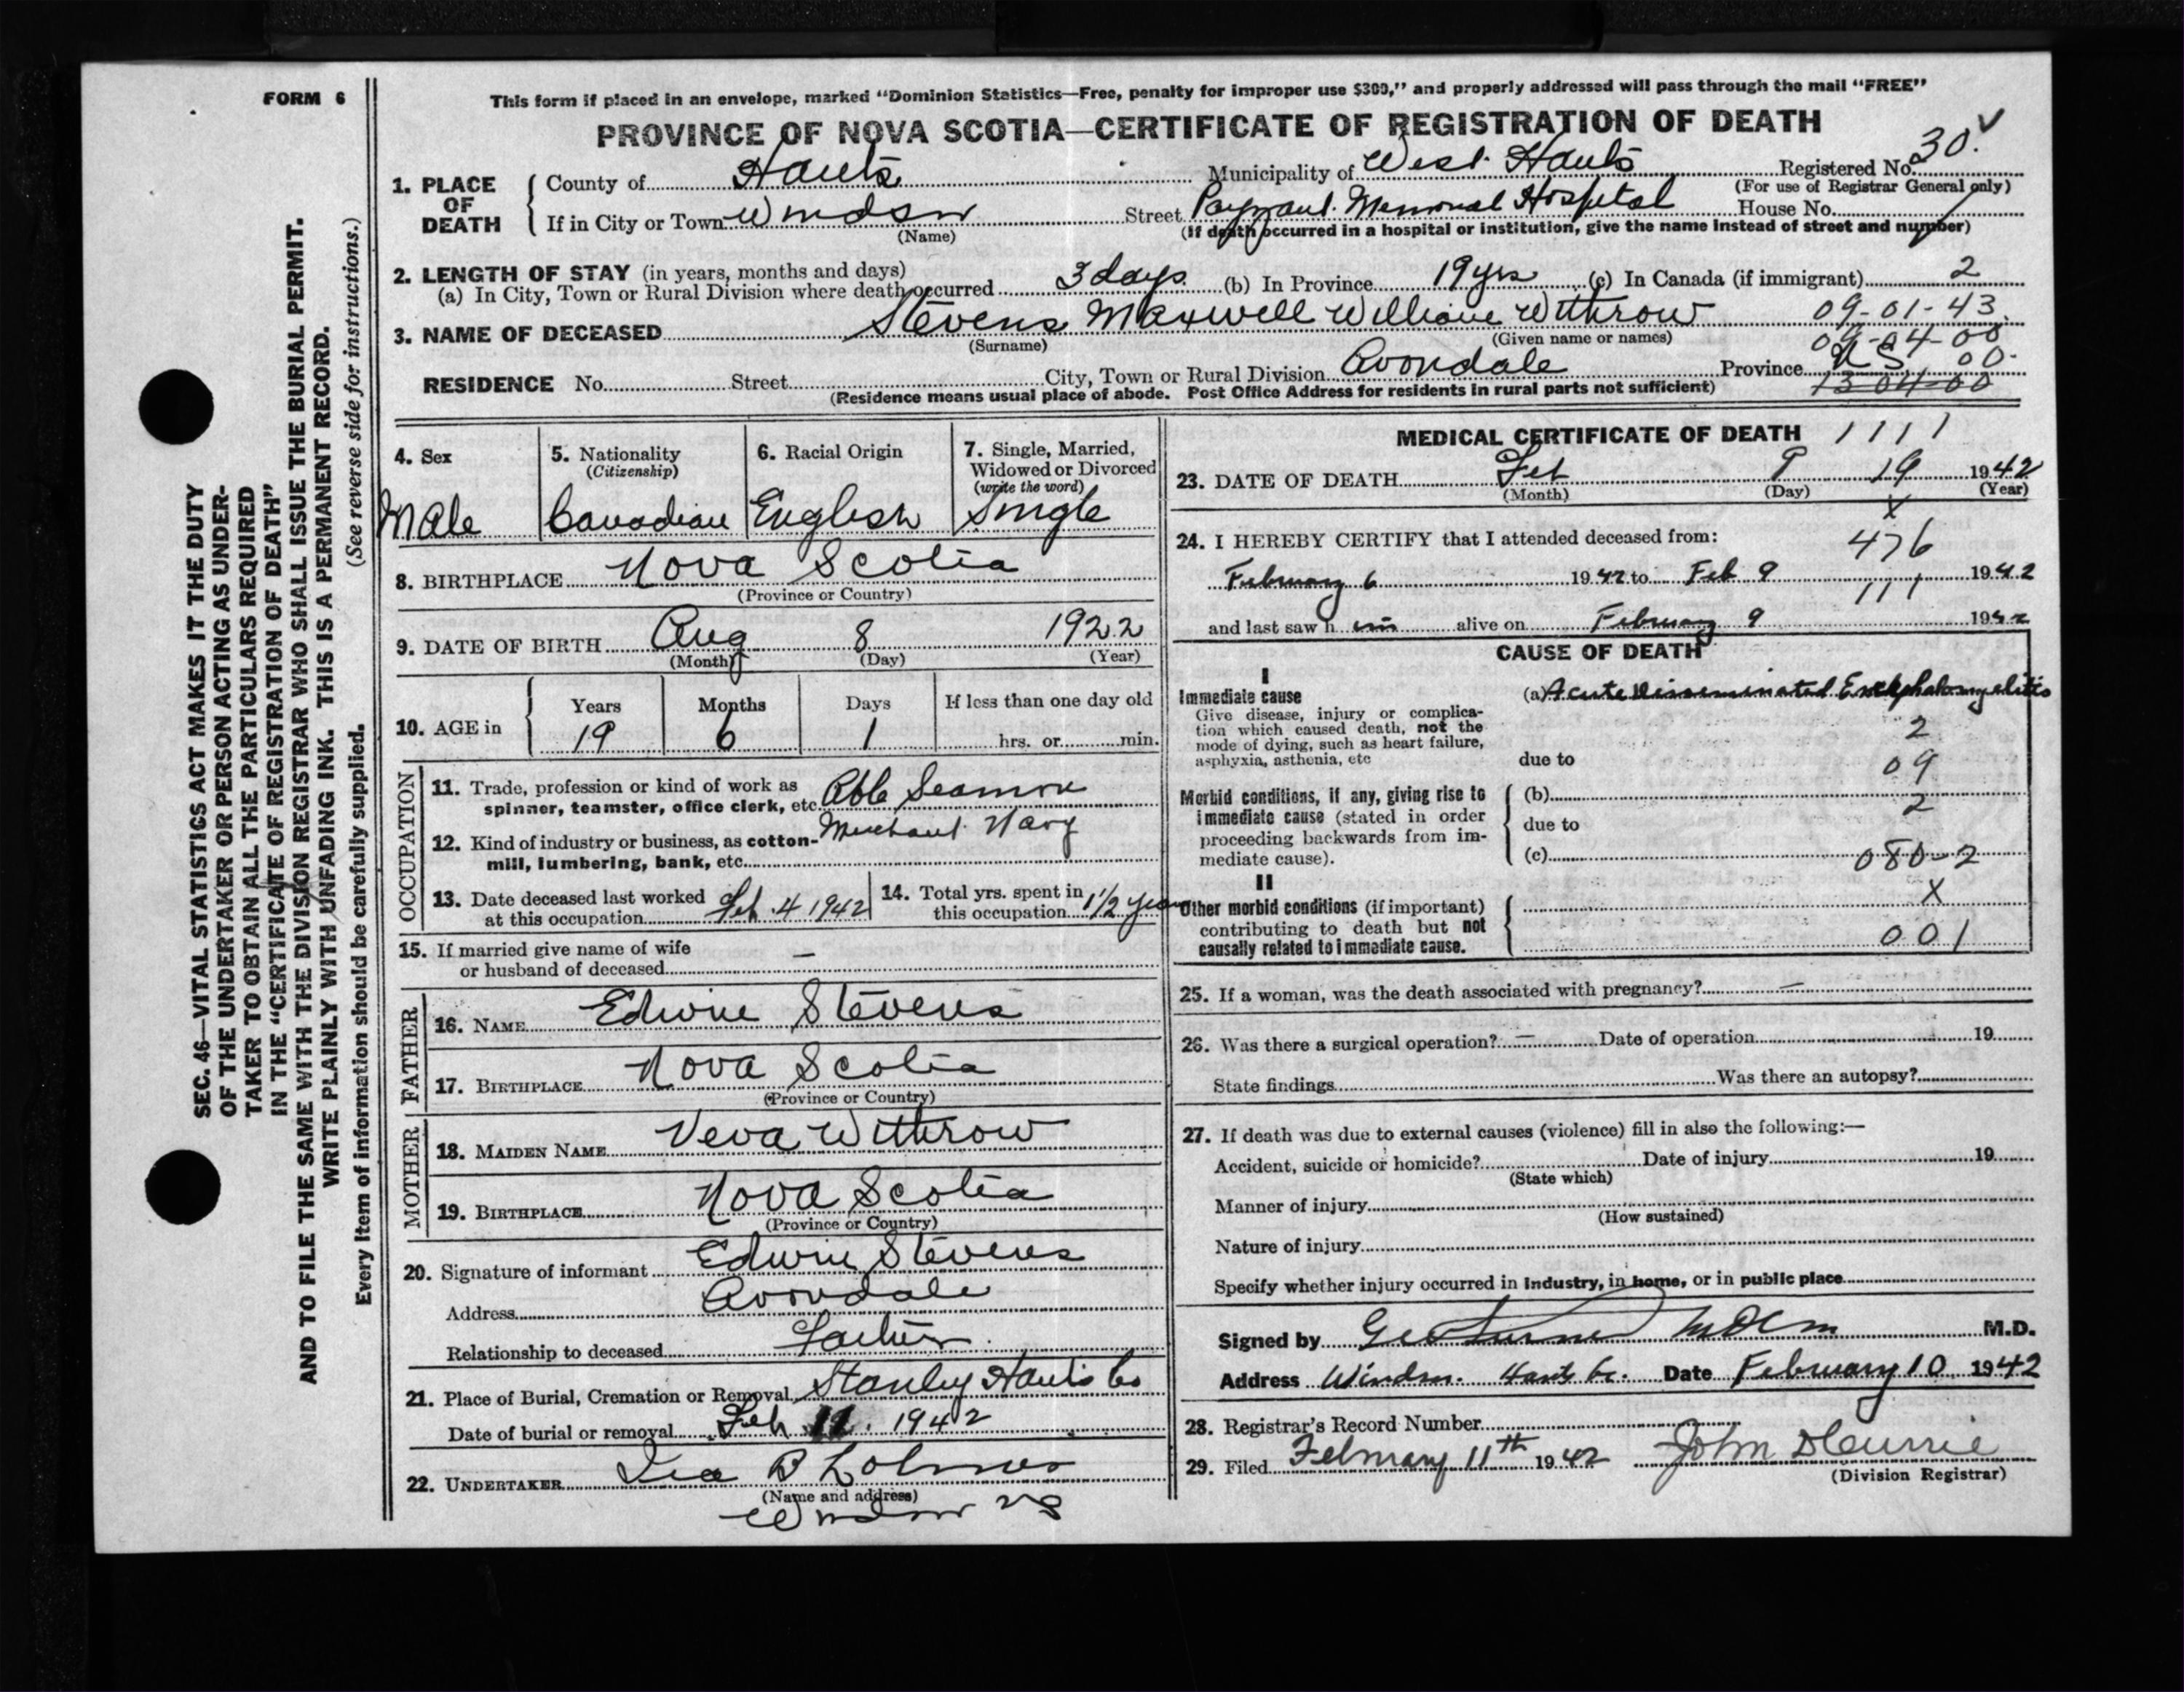 FORM 6
This form if placed in an envelope, marked "Dominion Statistics—Free, penalty for improper use $300," and properly addressed will pass through the mail "FREE"
PROVINCE OF NOVA SCOTIA—CERTIFICATE OF REGISTRATION OF DEATH
SEC. 46—VITAL STATISTICS ACT MAKES IT THE DUTY
OF THE UNDERTAKER OR PERSON ACTING AS UNDER-
TAKER TO OBTAIN ALL THE PARTICULARS REQUIRED
IN THE "CERTIFICATE OF REGISTRATION OF DEATH"
AND TO FILE THE SAME WITH THE DIVISION REGISTRAR WHO SHALL ISSUE THE BURIAL PERMIT.
WRITE PLAINLY WITH UNFADING INK. THIS IS A PERMANENT RECORD.
Every item of information should be carefully supplied. (See reverse side for instructions.)
1. PLACE OF DEATH County of Hants Municipality of West Hants Registered No. 30 ✓
(For use of Registrar General only)
If in City or Town Windsor Street Payzant Memorial Hospital House No.
(Name) (If death occurred in a hospital or institution, give the name instead of street and number)
2. LENGTH OF STAY (in years, months and days)
(a) In City, Town or Rural Division where death occurred 3 days (b) In Province 19 yrs (c) In Canada (if immigrant) 2
3. NAME OF DECEASED Stevens Maxwell William Withrow 09-01-43
(Surname) (Given name or names) 09-04-00
RESIDENCE No. Street City, Town or Rural Division Avondale Province N S 00
(Residence means usual place of abode. Post Office Address for residents in rural parts not sufficient) 13 04-00
4. Sex Male
5. Nationality (Citizenship) Canadian
6. Racial Origin English
7. Single, Married, Widowed or Divorced (write the word) Single
8. BIRTHPLACE Nova Scotia
(Province or Country)
9. DATE OF BIRTH Aug 8 1922
(Month) (Day) (Year)
10. AGE in Years 19 Months 6 Days 1 If less than one day old hrs. or min.
OCCUPATION
11. Trade, profession or kind of work as
spinner, teamster, office clerk, etc. Able Seaman
12. Kind of industry or business, as cotton- Merchant Navy
mill, lumbering, bank, etc.
13. Date deceased last worked
at this occupation Feb. 4 1942
14. Total yrs. spent in
this occupation 1 1/2 years
15. If married give name of wife
or husband of deceased —
FATHER
16. NAME Edwin Stevens
17. BIRTHPLACE Nova Scotia
(Province or Country)
MOTHER
18. MAIDEN NAME Veva Withrow
19. BIRTHPLACE Nova Scotia
(Province or Country)
20. Signature of informant Edwin Stevens
Address Avondale
Relationship to deceased Father
21. Place of Burial, Cremation or Removal Stanley Hants Co
Date of burial or removal Feb 11. 1942
22. UNDERTAKER Ira B Lohnes
(Name and address)
Windsor NS
MEDICAL CERTIFICATE OF DEATH 1111
23. DATE OF DEATH Feb 9 19 1942
(Month) (Day) (Year)
X
24. I HEREBY CERTIFY that I attended deceased from: 476
February 6 1942 to Feb 9 1942
111
and last saw him alive on February 9 1942
CAUSE OF DEATH
I
Immediate cause (a) Acute Disseminated Encephalomyelitis
Give disease, injury or complica-
tion which caused death, not the 2
mode of dying, such as heart failure,
asphyxia, asthenia, etc due to 09
Morbid conditions, if any, giving rise to (b)
immediate cause (stated in order 2
proceeding backwards from im- due to
mediate cause). (c) 080-2
II X
Other morbid conditions (if important)
contributing to death but not
causally related to immediate cause. 001
25. If a woman, was the death associated with pregnancy? —
26. Was there a surgical operation? — Date of operation 19
State findings Was there an autopsy?
27. If death was due to external causes (violence) fill in also the following:—
Accident, suicide or homicide? Date of injury 19
(State which)
Manner of injury
(How sustained)
Nature of injury
Specify whether injury occurred in industry, in home, or in public place
Signed by M.D.
Address Windsor. Hants Co. Date February 10 1942
28. Registrar's Record Number
29. Filed February 11th 1942 John D Currie
(Division Registrar)